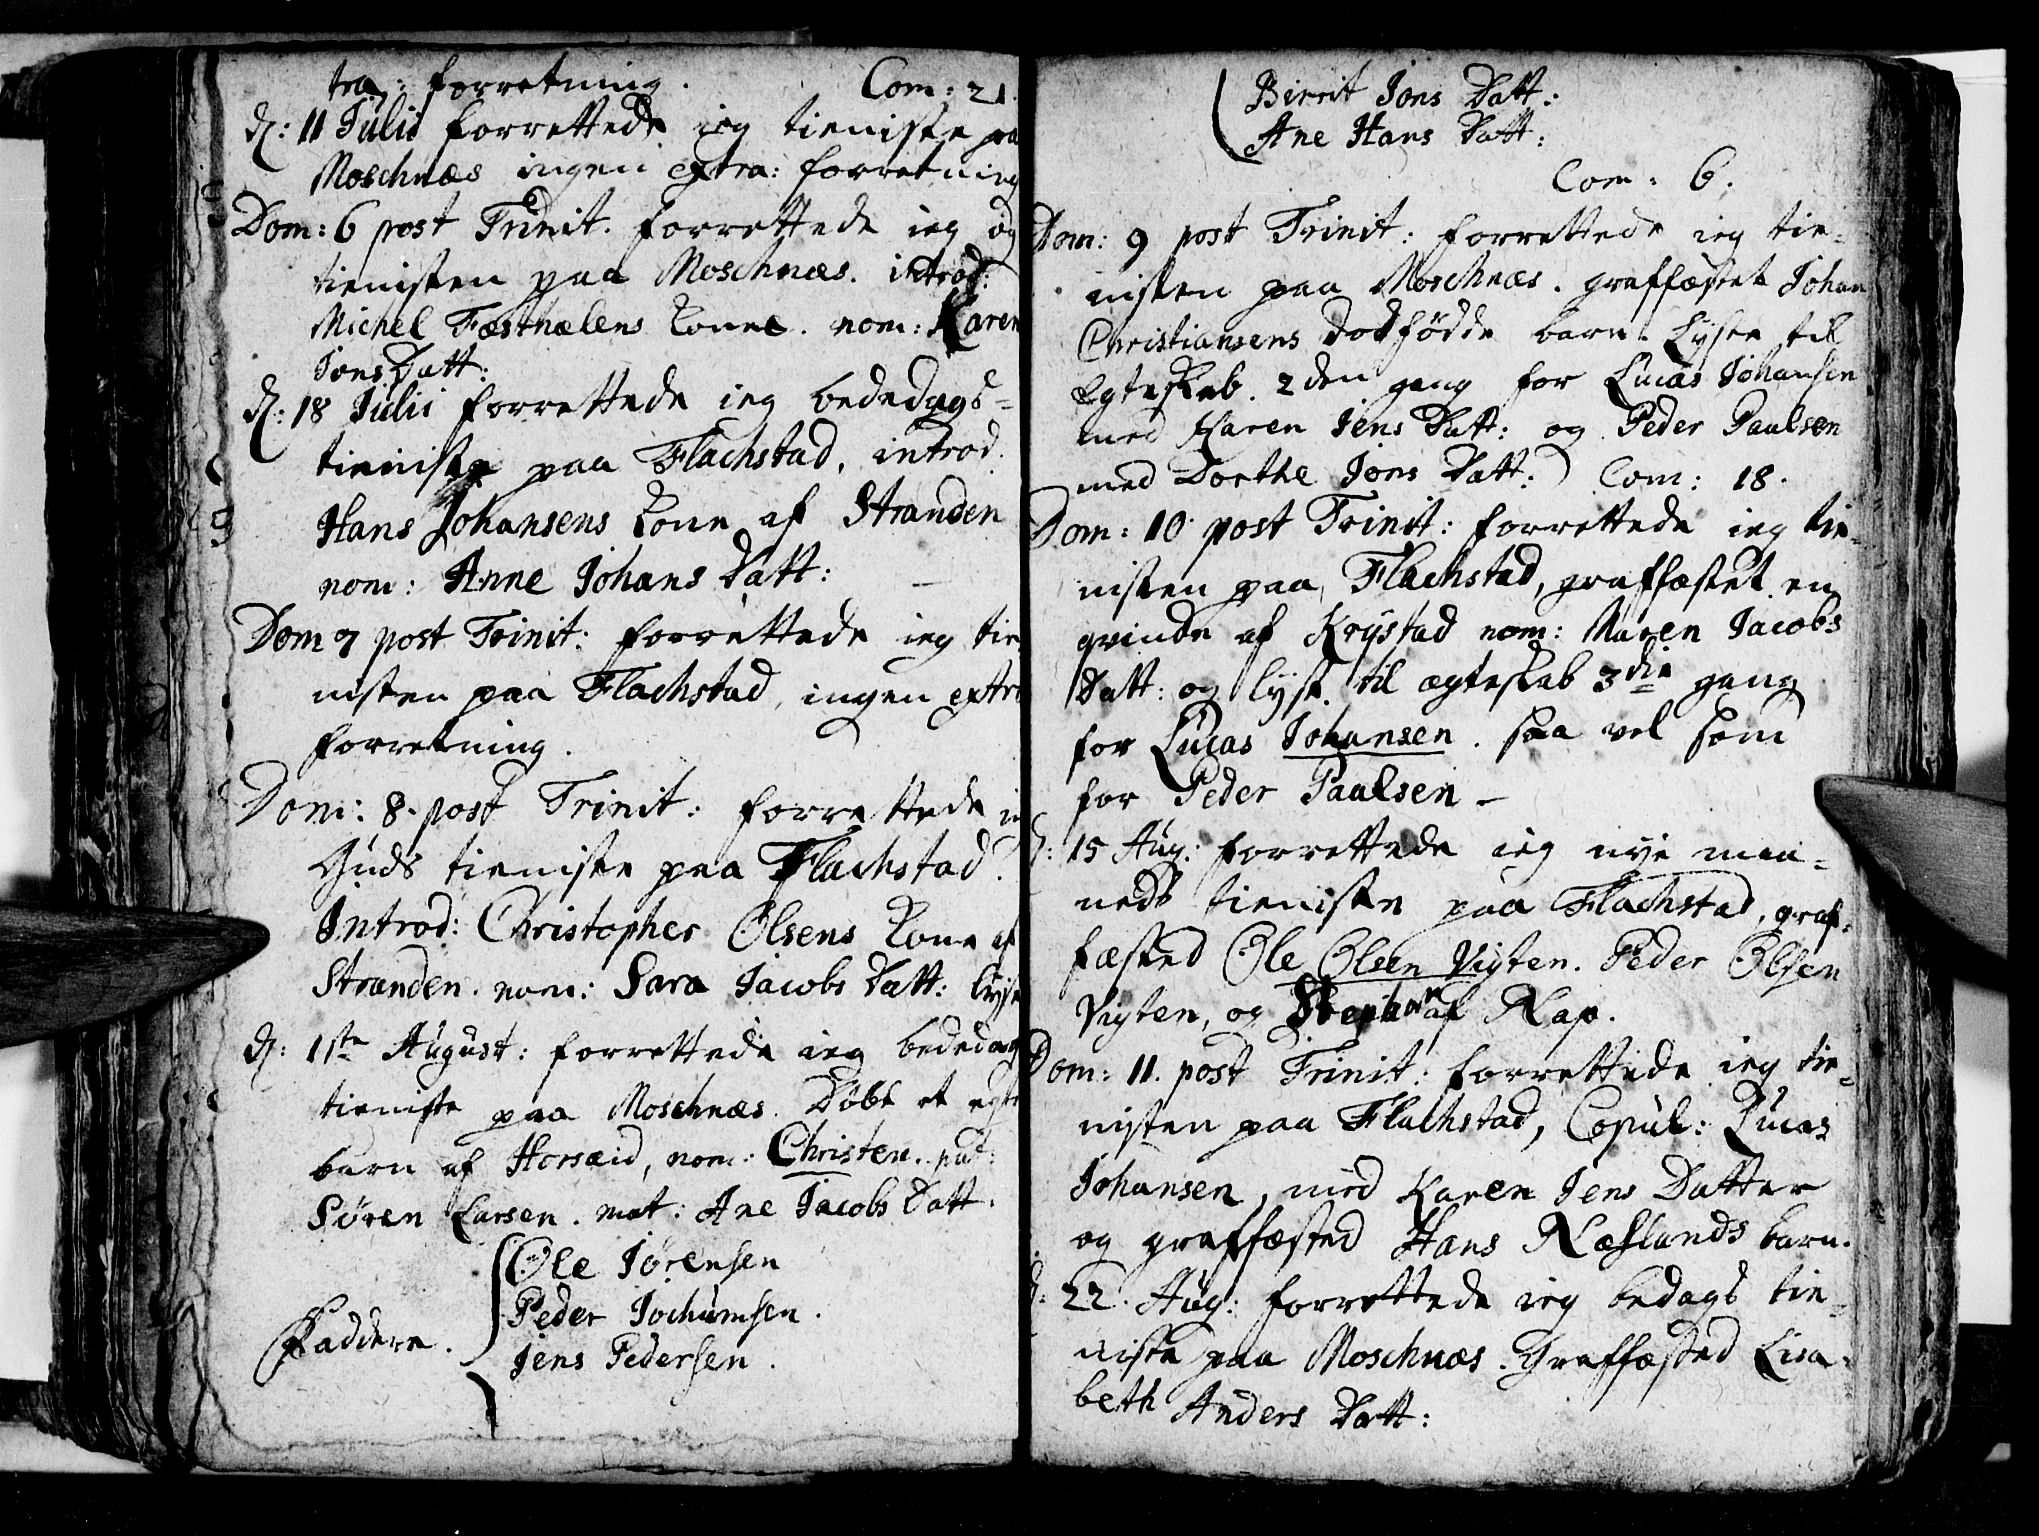 tra: forretning. Com: 21.
d: 11 Julii forrettede ieg tieniste paa
Moschnæs ingen extra: forretning
Dom: 6 post Trinit. forrettede ieg
tienisten paa Moschnæs. introd:
Michel Fæsthælens Kone. nom: Karen
Jons Datt:
d: 18 Julii forrettede ieg bededags-
tieniste paa Flachstad, introd.
Hans Johansens Kone af Stranden
nom: Anne Johans Datt:
Dom 7 post Trinit: forrettede ieg tie
nisten paa Flachstad, ingen extra
forretning.
Dom: 8. post Trinit: forrettede ie
Guds tieniste paa Flachstad.
Introd: Christopher Olsens Kone af
Stranden. nom: Sara Jacobs Datt: lyse
d: 1ste August: forrettede ieg bededag
tieniste paa Moschnæs. Døbt et egte
barn af Horsæid, nom: Christen. pat:
Søren Larsen. mat: Ane Jacobs Datt.
Faddere.
Ole Jørensen
Peder Jochumsen.
Jens Pedersen.
Birrit Jons Datt:
Ane Hans Datt:
Com: 6.
Dom: 9 post Trinit: forrettede ieg tie-
nisten paa Moschnæs. graffæstet Johan
Christiansens dødfødde barn. Lyste til
Egteskab. 2den gang for Lucas Johansen
med Karen Jens Datt: og Peder Paulsen
med Dorthe Jons Datt: Com: 18.
Dom: 10 post Trinit: forrettede ieg tie-
nisten paa Flachstad, graffæstet en
qvinde af Krystad nom: Maren Jacobs
Datt: og lyst til ægteskab 3die gang
for Lucas Johansen. saa vel som
for Peder Paulsen -
d: 15 Aug: forrettede ieg nye maa-
neds tieniste paa Flachstad, graf-
fæsted Ole Olsen Vigten. Peder Olsen
Vigten, og af Nap.
Dom: 11. post Trinit: forrettede ieg tie-
nisten paa Flachstad, Copul: Lucas
Johansen, med Karen Jens Datter
og graffæsted Hans Næslands barn.
d: 22. Aug: forrettede ieg bedags tie-
niste paa Moschnæs. Graffæsted Lisa-
beth Anders Datt: